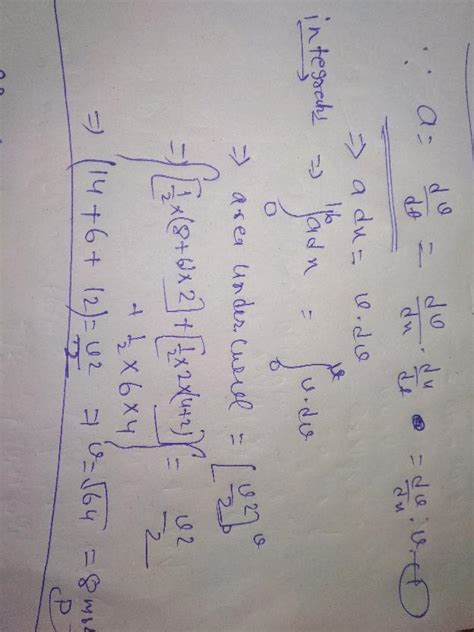 ∵ a = dv/dt = dv/dx · dx/dt = dv/dx · v
⇒ a dx = v·dv
integrals ⇒ ∫₀ a dx = ∫ v·dv
⇒ area under curve = [v²/2]
⇒ [1/2×(8+6)×2] + [1/2×2×(4+2)]
+ 1/2×6×4 = v²/2
⇒ (14+6+12) = v²/2 ⇒ v = √64 = 8 m/s